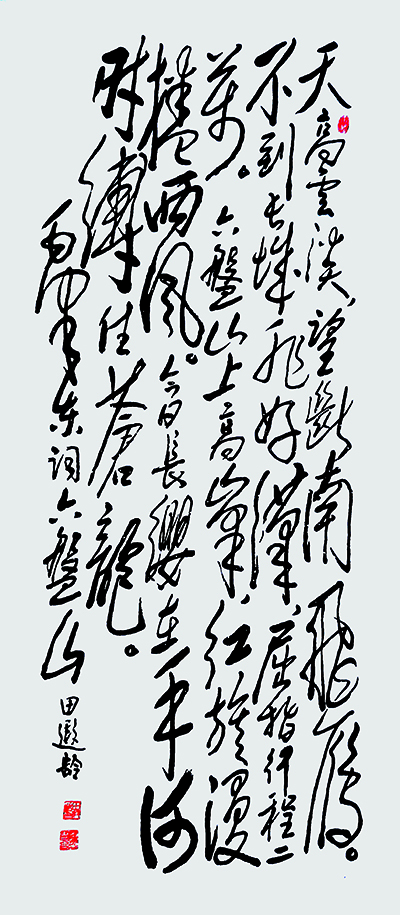 天高雲淡、望斷南飛雁。
不到长城非好漢、屈指行程二
萬。六盤山上高峰、红旗漫
捲西風。今日長纓在手何
时縛住蒼龍。
毛泽东词六盤山
田遐龄